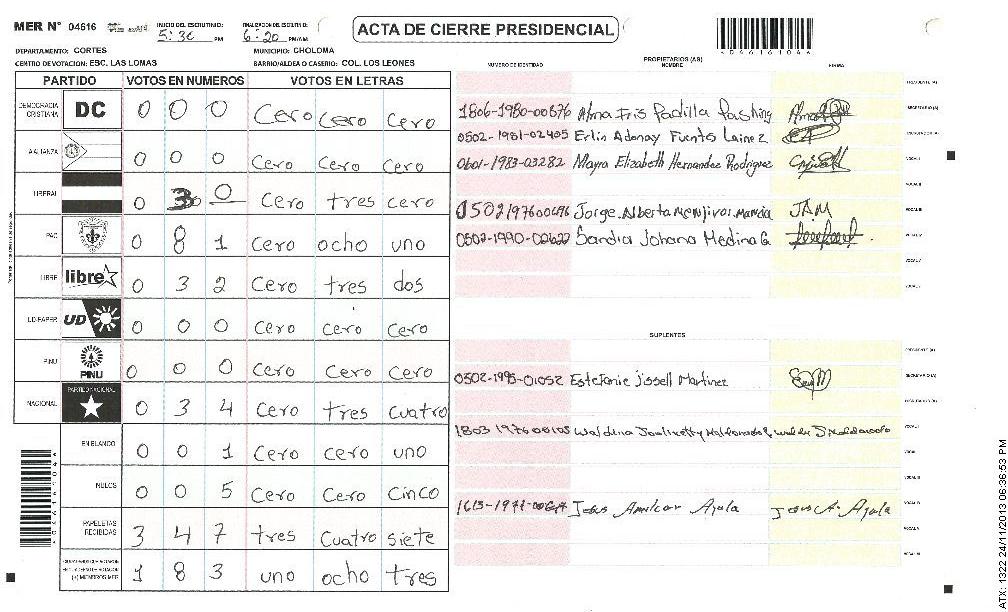 MER N° 04616 INICIO DEL ESCRUTINIO: 5:30 PM FINALIZACION DEL ESCRUTINIO: 6:20 PM/AM ACTA DE CIERRE PRESIDENCIAL
DEPARTAMENTO: CORTES MUNICIPIO: CHOLOMA
CENTRO DE VOTACION: ESC. LAS LOMAS BARRIO/ALDEA O CASERIO: COL. LOS LEONES
NUMERO DE IDENTIDAD PROPIETARIOS (AS) NOMBRE FIRMA
PARTIDO VOTOS EN NUMEROS VOTOS EN LETRAS
DEMOCRACIA CRISTIANA DC 0 0 0 Cero Cero Cero
ALIANZA 0 0 0 Cero Cero Cero
LIBERAL 0 3 0 Cero tres cero
PAC 0 8 1 Cero ocho uno
LIBRE libre 0 3 2 Cero tres dos
UD-FAPER UD 0 0 0 Cero Cero Cero
PINU PINU 0 0 0 Cero Cero Cero
NACIONAL PARTIDO NACIONAL 0 3 4 Cero tres Cuatro
EN BLANCO 0 0 1 Cero cero uno
NULOS 0 0 5 Cero Cero Cinco
PAPELETAS RECIBIDAS 3 4 7 tres Cuatro siete
(+) MIEMBROS MER 1 8 3 uno ocho tres
1806-1980-00876 Alma Iris Padilla
0502-1981-02405 Erlin Adonay Funts Lainez
0601-1983-03282 Mayra Elizabeth Hernandez Rodriguez
Jorge Alberto Menjivar JAM
0502-1990-02622 Sandra Johana Medina G.
SUPLENTES
0502-1995-01052 Estefanie Jissell Martinez
1803 1976 00105
Jesus Amilcar Ayala Jesus A. Ayala
ATX: 1322 24/11/2013 06:36:53 PM